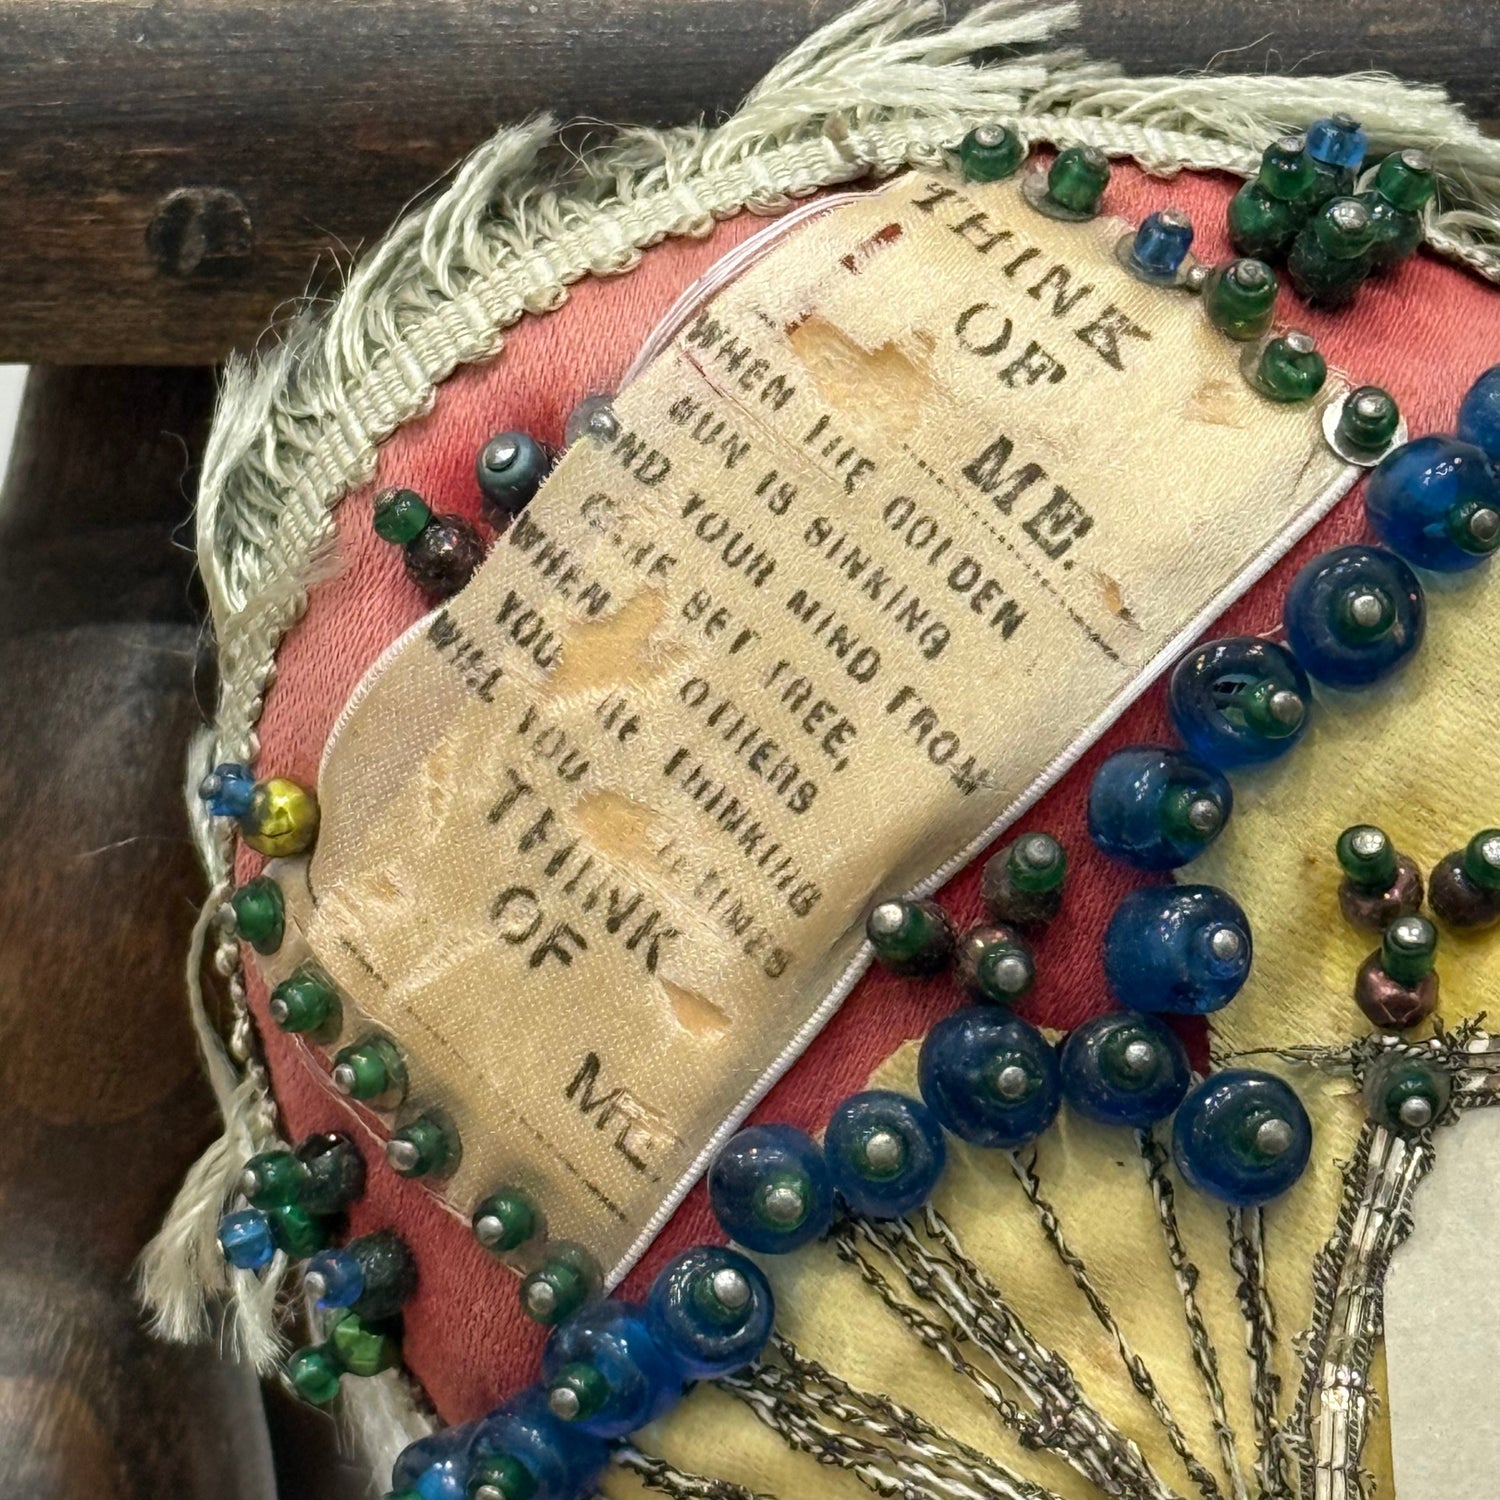 THINK
OF
ME.
WHEN THE GOLDEN
SUN IS SINKING
AND YOUR MIND FROM
CARE SET FREE,
WHEN OTHERS
YOU THINKING
WILL YOU TIMES
THINK
OF
ME